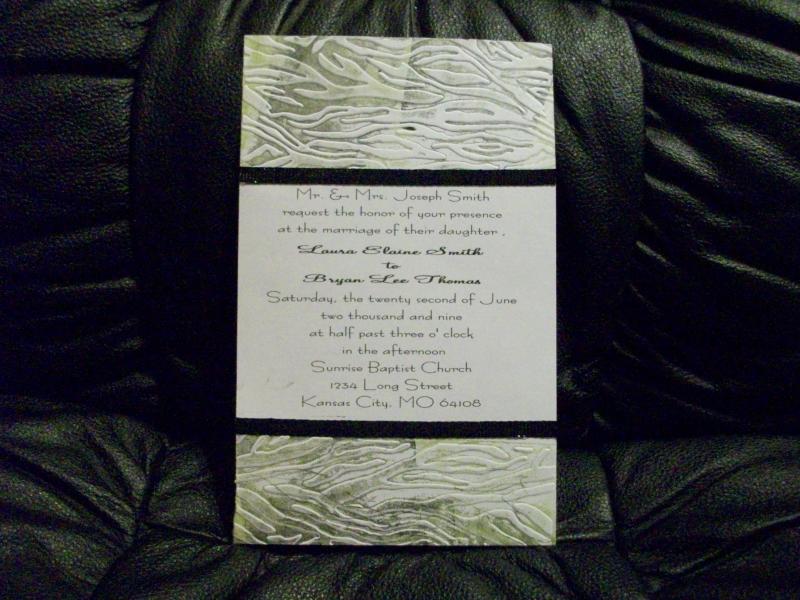 Mr. & Mrs. Joseph Smith
request the honor of your presence
at the marriage of their daughter ,
Laura Elaine Smith
to
Bryan Lee Thomas
Saturday, the twenty second of June
two thousand and nine
at half past three o' clock
in the afternoon
Sunrise Baptist Church
1234 Long Street
Kansas City, MO 64108